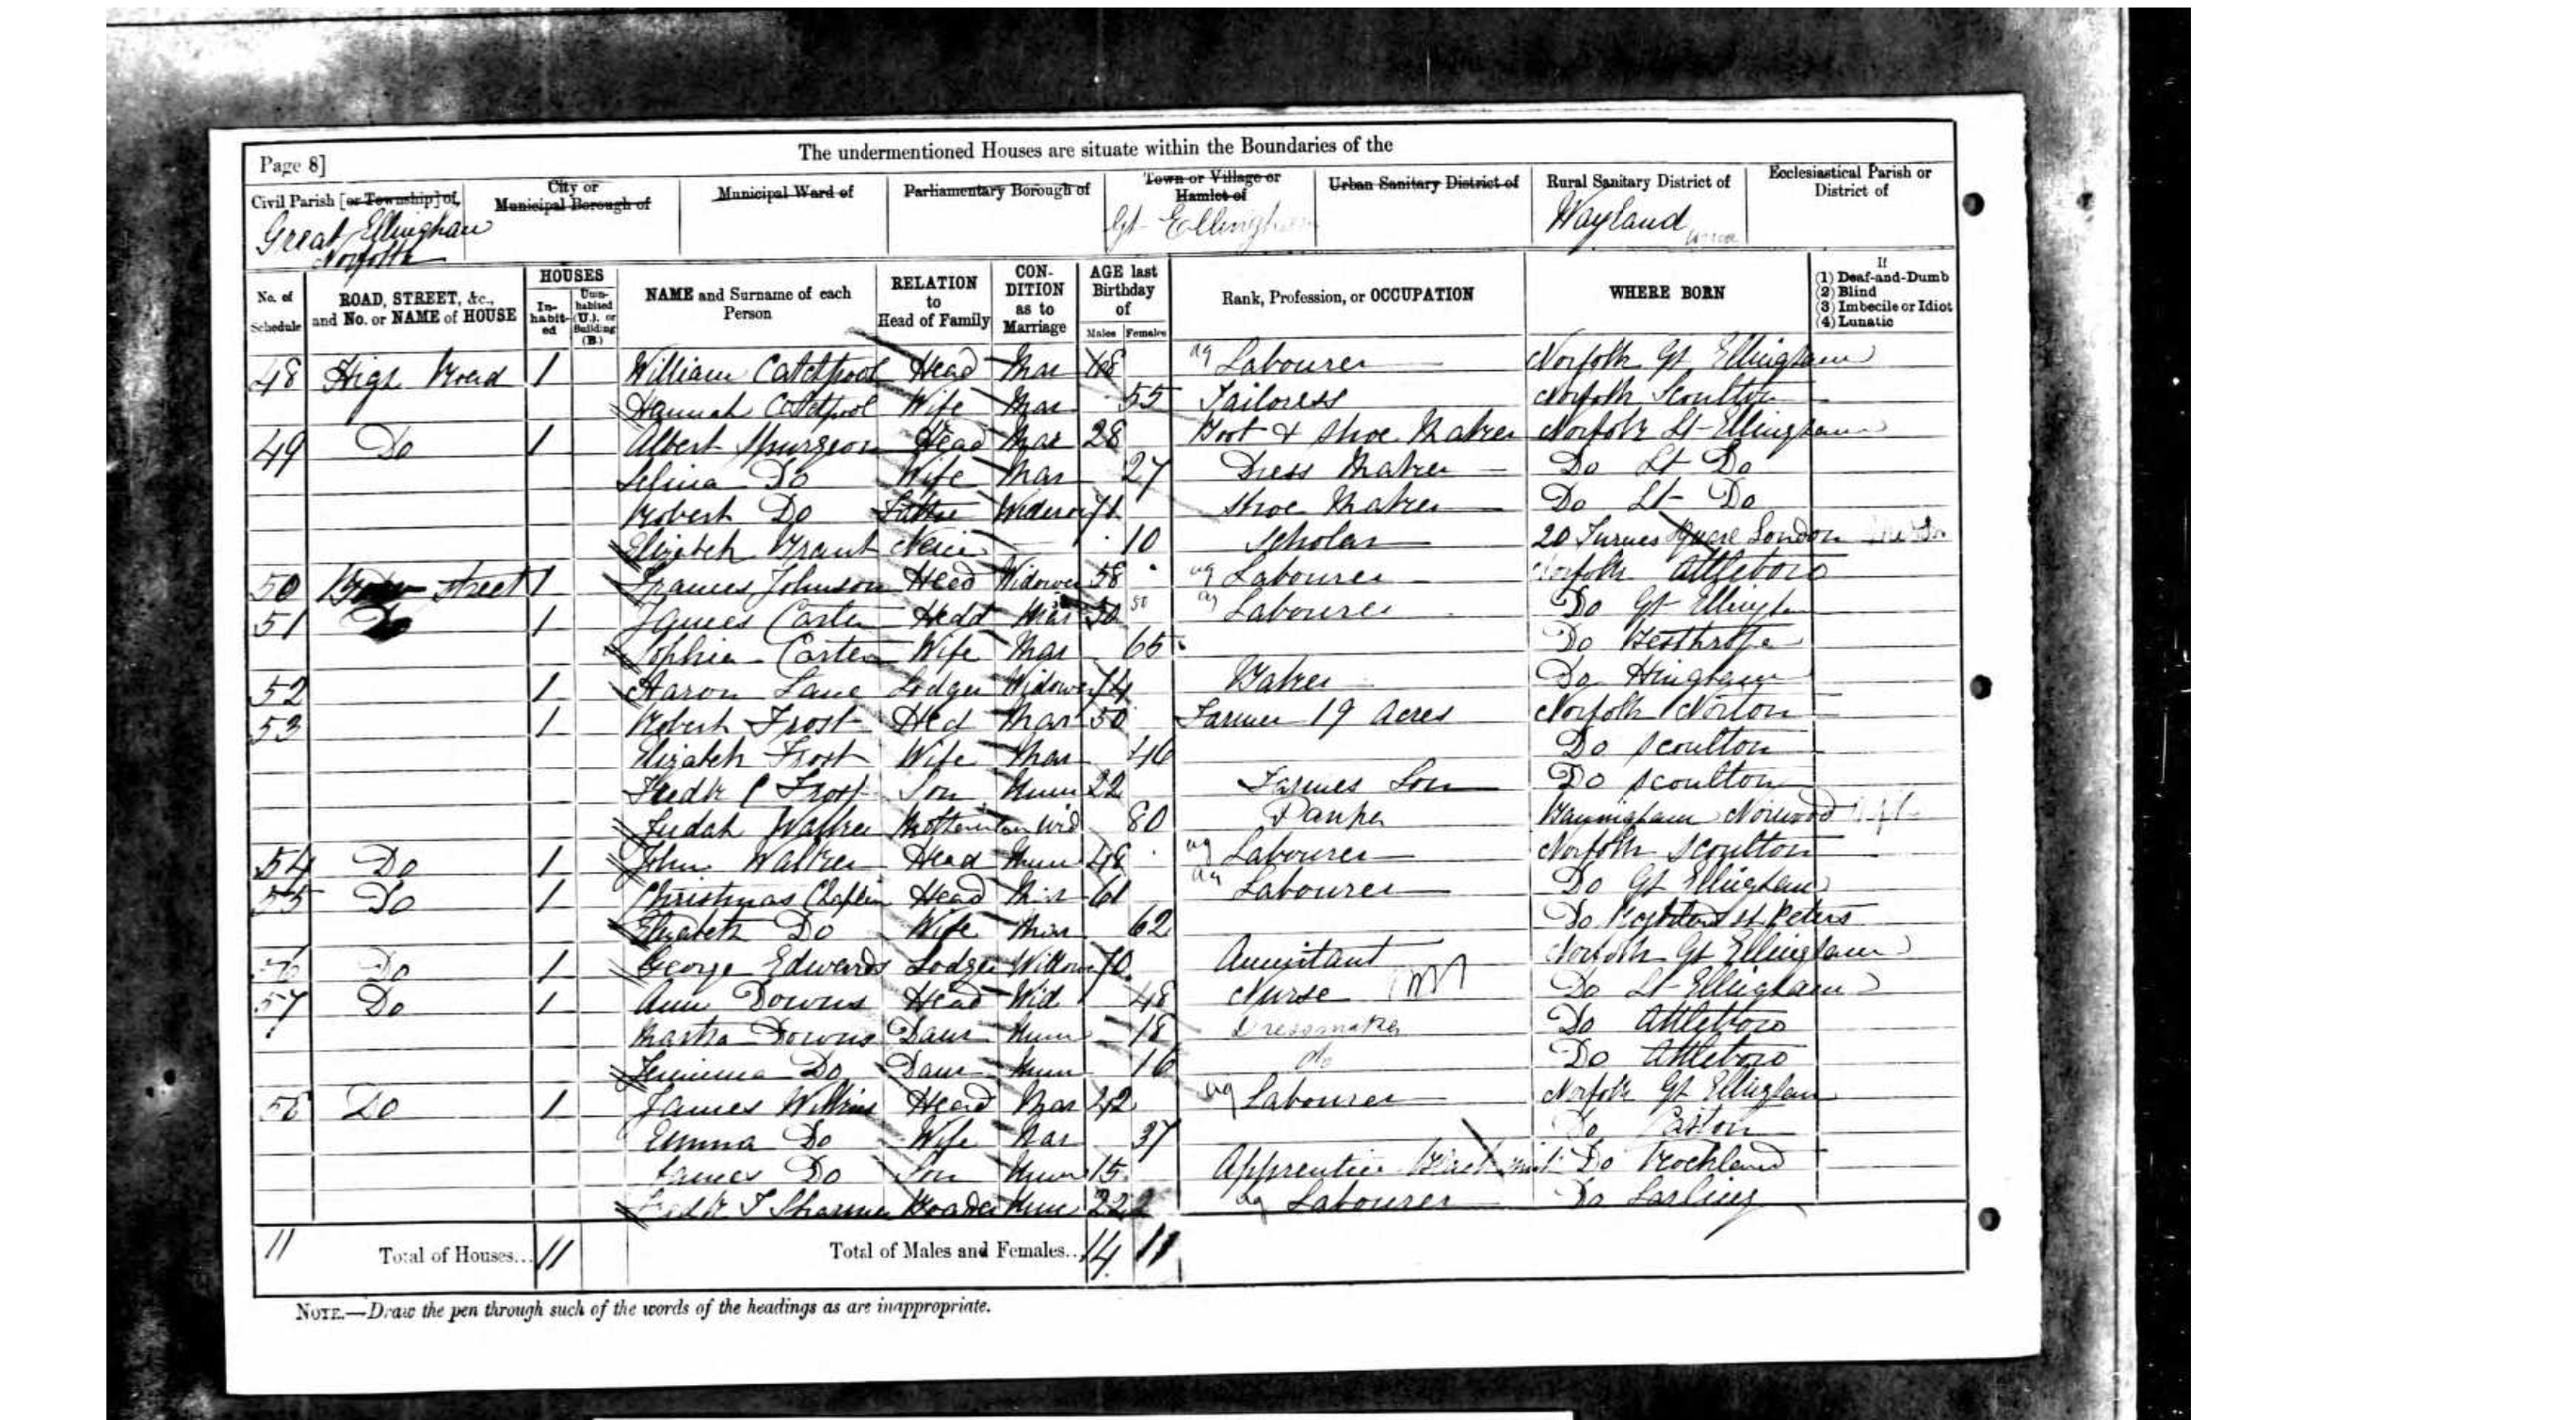 Page 8]
The undermentioned Houses are situate within the Boundaries of the
Civil Parish [or Township] of, City or Municipal Borough of Municipal Ward of Parliamentary Borough of Town or Village or Hamlet of Urban Sanitary District of Rural Sanitary District of Ecclesiastical Parish or District of
Great Ellingham Norfolk Gt Ellingham Wayland
No. of Schedule ROAD, STREET, &c., and No. or NAME of HOUSE HOUSES Inhabited Uninhabited (U.), or Building (B.) NAME and Surname of each Person RELATION to Head of Family CONDITION as to Marriage AGE last Birthday of Males Females Rank, Profession, or OCCUPATION WHERE BORN If (1) Deaf-and-Dumb (2) Blind (3) Imbecile or Idiot (4) Lunatic
48 High Road 1 William Catchpool Head Mar ag Labourer Norfolk Gt Ellingham
Hannah Catchpool Wife Mar 55 Tailoress Norfolk Scoulton
49 Do 1 Albert Spurgeon Head Mar 28 Boot & Shoe Maker Norfolk Lt Ellingham
Selina Do Wife Mar 27 Dress Maker Do Lt Do
Robert Do Father Widower 71 Shoe Maker Do Lt Do
Elizabeth Brant Neice 10 Scholar 20 Square London
50 Street 1 Johnson Head Widower 58 ag Labourer Norfolk Attleboro
51 Do 1 James Carter Head Mar 50 ag Labourer Do Gt
Sophia Carter Wife Mar 65 Do Besthrope
52 1 Aaron Lane Lodger Widower 74 Baker Do Hingham
53 1 Robert Frost Hed Mar 50 Farmer 19 Acres Norfolk Norton
Elizabeth Frost Wife Mar 46 Do Scoulton
Fredk C Frost Son Unm 22 Farmers Son Do Scoulton
Judah Walker Motherinlaw Wid 80 Pauper Norwood
54 Do 1 John Walker Head Unm 48 ag Labourer Norfolk Scoulton
55 Do 1 Christmas Chaplin Head Mar 61 ag Labourer Do Gt Ellingham
Elizabeth Do Wife Mar 62 Do St Peters
56 Do 1 George Edwards Lodger Widower 70 Annuitant Norfolk Gt Ellingham
57 Do 1 Ann Downs Head Wid 48 Nurse Do Lt Ellingham
Martha Downs Daur Unm 18 Dressmaker Do Attleboro
Jemima Do Daur Unm 16 Do Do Attleboro
58 Do 1 James Wilkins Head Mar 42 ag Labourer Norfolk Gt Ellingham
Emma Do Wife Mar 37 Do Caston
James Do Son Unm 15 Apprentice Blacksmith Do Rockland
Fredk Boader Unm 22 ag Labourer Do Larling
11 Total of Houses... 11 Total of Males and Females.. 14 11
NOTE.—Draw the pen through such of the words of the headings as are inappropriate.